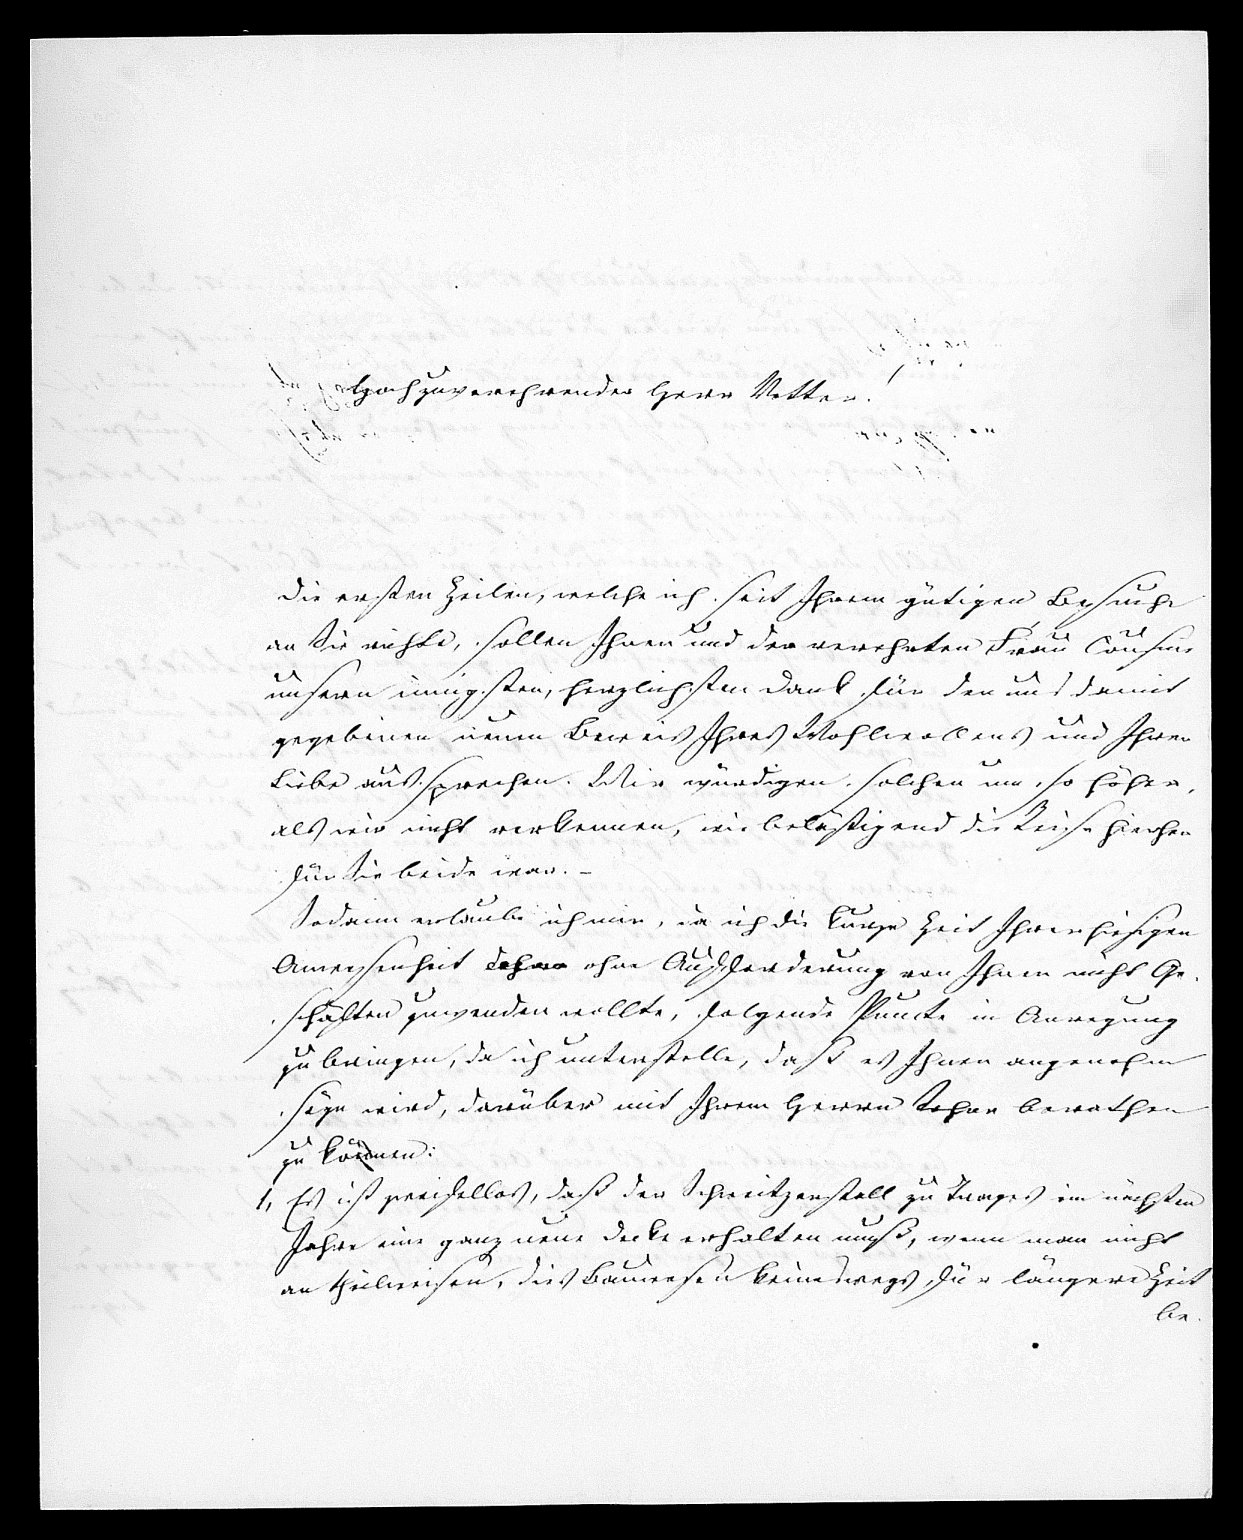 Hochzuverehrender Herr Vetter!
Die ersten Zeilen, welche ich seit Ihrem gütigen Besuche
an Sie richte, sollen Ihnen und der verehrten Frau Cousine
unsern innigsten, herzlichsten Dank für den uns damit
gegebenen neuen Beweis Ihres Wohlwollens und Ihrer
Liebe aussprechen. Wir würdigen solchen um so höher,
als wir nicht verkennen, wie belästigend die Reise hierher
für Sie beide war. –
Sodann erlaube ich mir, da ich die kurze Zeit Ihrer hiesigen
Anwesenheit ohne Aufforderung von Ihnen nicht Ge-
schäften zuwenden wollte, folgende Puncte in Anregung
zu bringen, da ich unterstelle, daß es Ihnen angenehm
seyn wird, darüber mit Ihrem Herrn Sohne berathen
zu können:
1, Es ist zweifellos, daß der Schweitzerstall zu Trages im nächsten
Jahre eine ganz neue Decke erhalten muß, wenn man nicht
an theilweisen, dies Bauwesen keineswegs für längere Zeit
be-